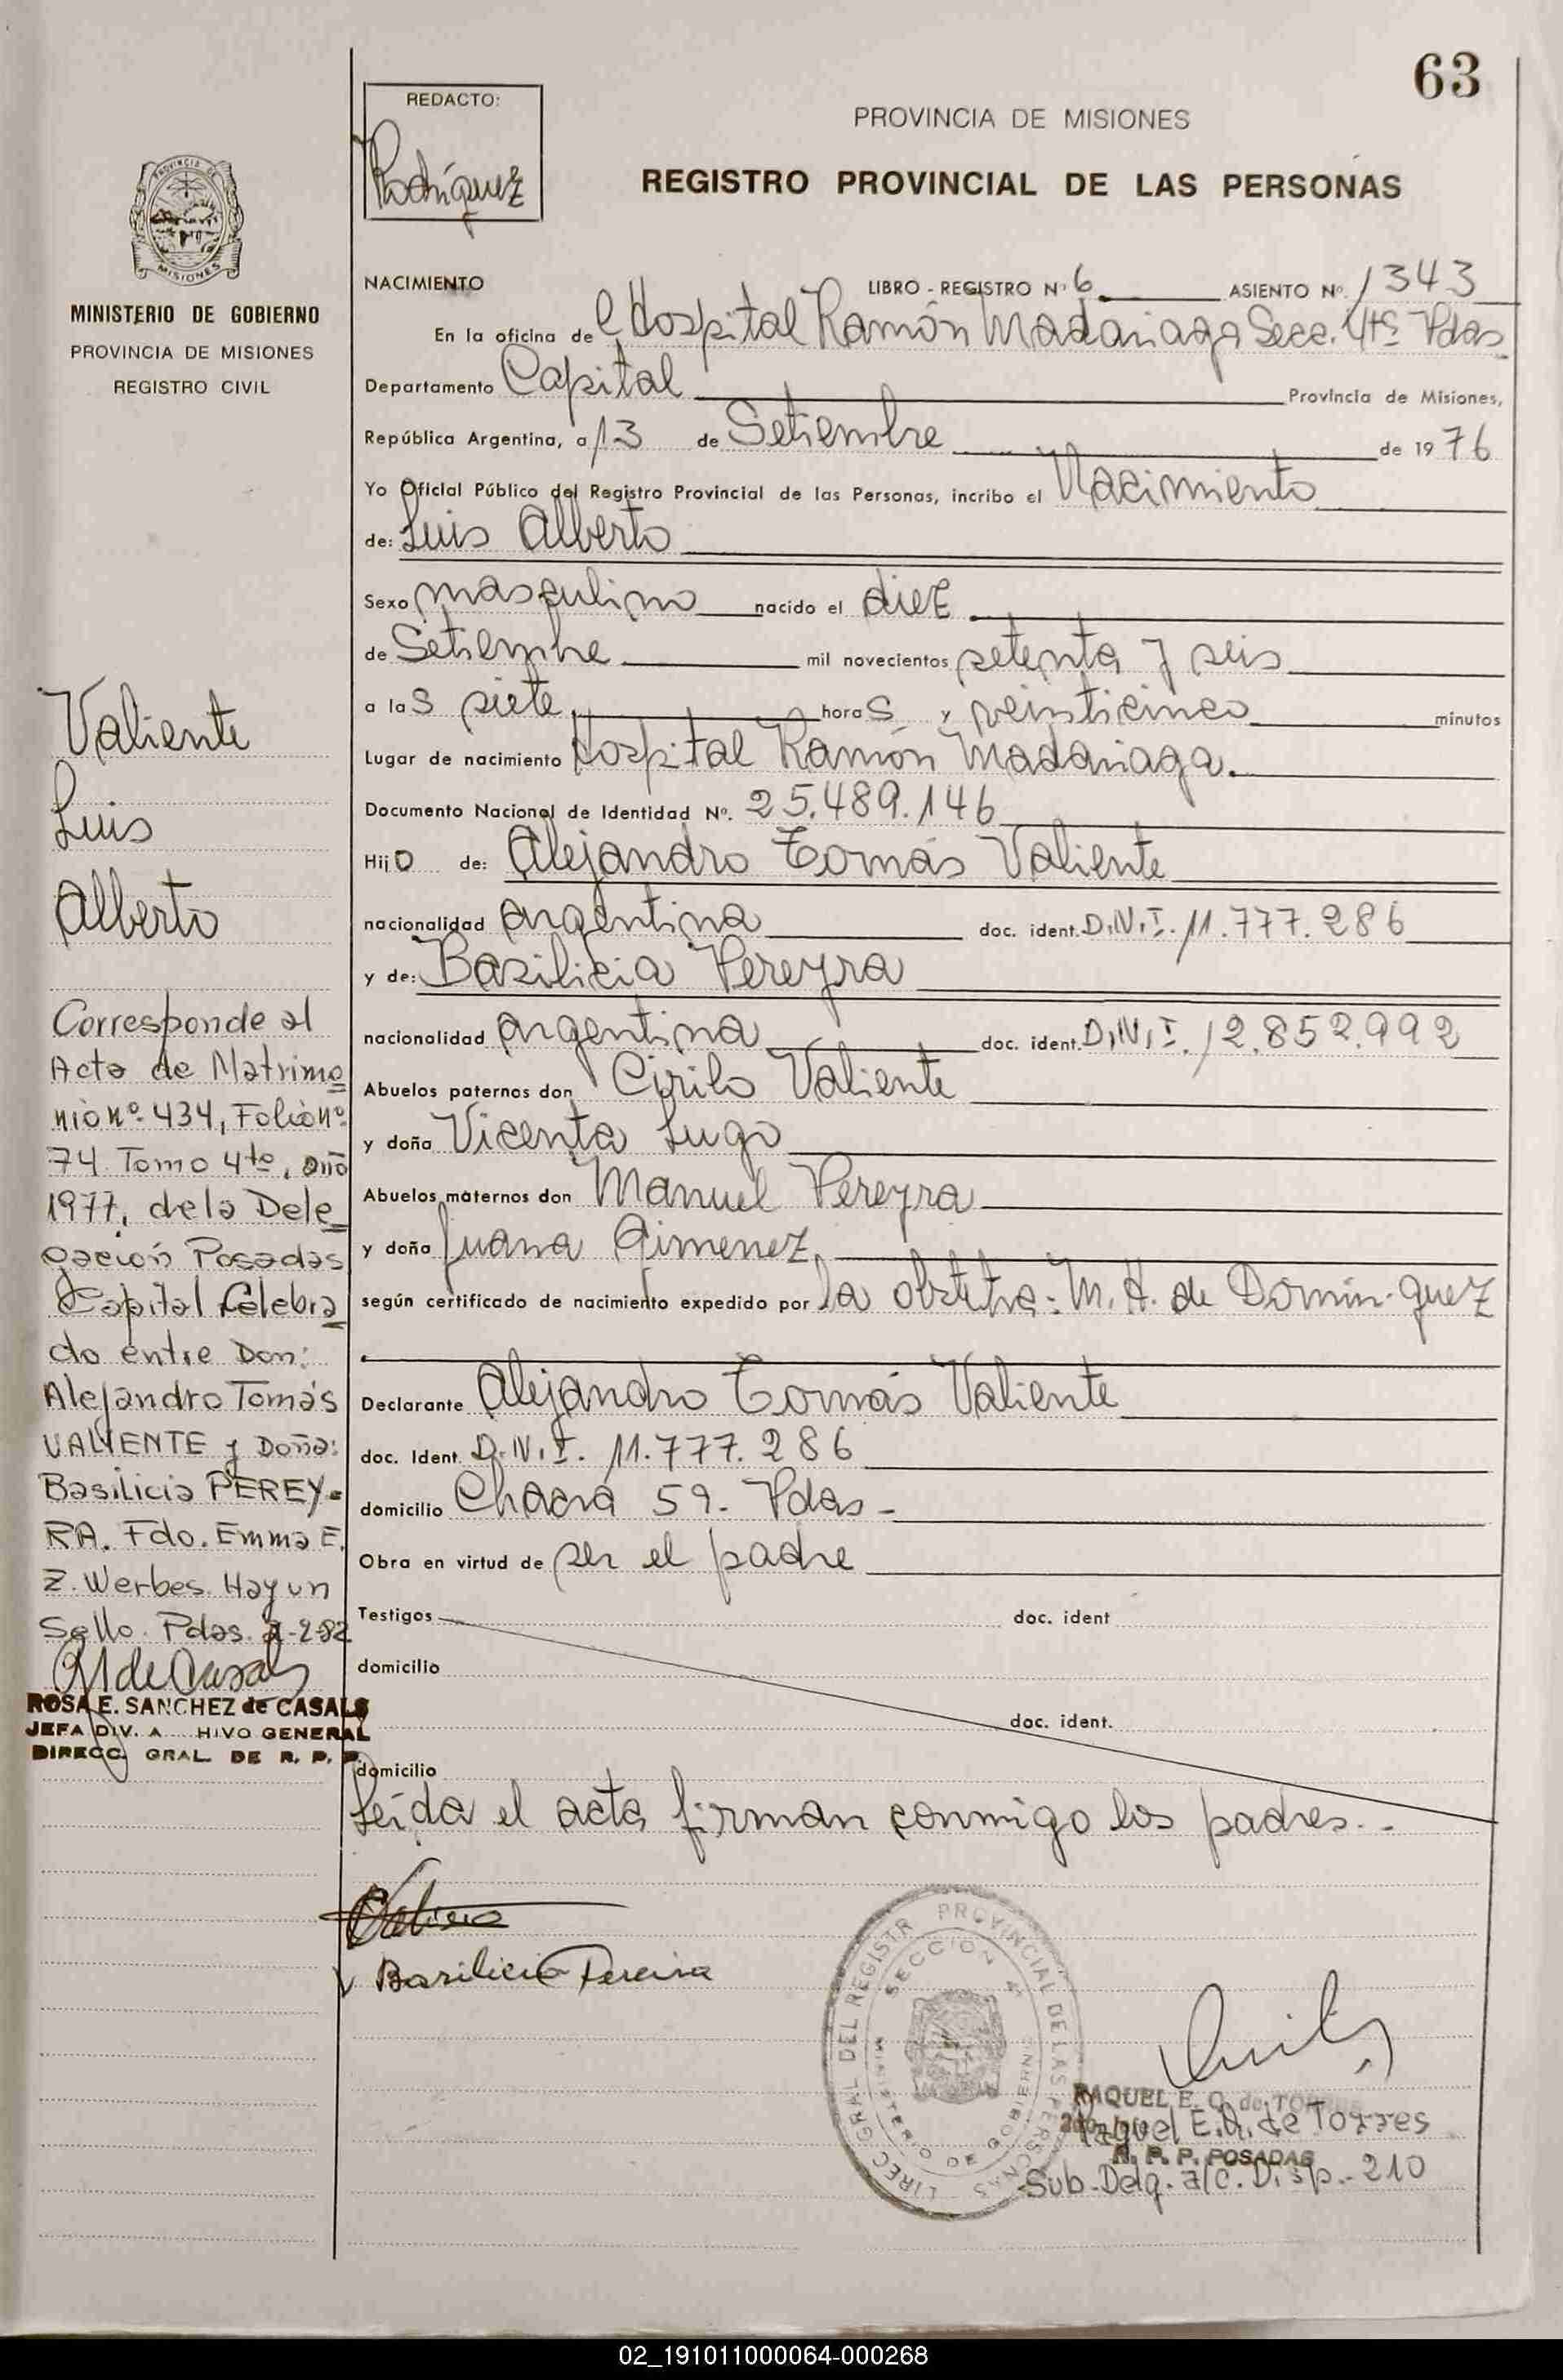 63
REDACTO:
Rodríguez
PROVINCIA DE MISIONES
REGISTRO PROVINCIAL DE LAS PERSONAS
PROVINCIA DE
MISIONES
MINISTERIO DE GOBIERNO
PROVINCIA DE MISIONES
REGISTRO CIVIL
NACIMIENTO LIBRO - REGISTRO Nº 6 ASIENTO Nº. 1343
En la oficina de l Hospital Ramón Madariaga Secc. 4ta Pdas
Departamento Capital Provincia de Misiones,
República Argentina, a 13 de Setiembre de 1976
Yo Oficial Público del Registro Provincial de las Personas, incribo el Nacimiento
de: Luis Alberto
Sexo masculino nacido el diez
de Setiembre mil novecientos setenta y seis
a las siete horas y veinticinco minutos
Lugar de nacimiento Hospital Ramón Madariaga.
Documento Nacional de Identidad Nº. 25.489.146
Hijo de: Alejandro Tomás Valiente
nacionalidad argentina doc. ident. D.N.I. 11.777.286
y de: Basilicia Pereyra
nacionalidad argentina doc. ident. D.N.I. 12.852.992
Abuelos paternos don Cirilo Valiente
y doña Vicenta Lugo
Abuelos maternos don Manuel Pereyra
y doña Juana Gimenez
según certificado de nacimiento expedido por la obstetra: M. H. de Domin-guez
Declarante Alejandro Tomás Valiente
doc. Ident. D.N.I. 11.777.286
domicilio Chacra 59- Pdas-
Obra en virtud de ser el padre
Testigos doc. ident
domicilio
doc. ident.
domicilio
Leída el acta firman conmigo los padres.-
Basilicia Pereira
Valiente
Luis
Alberto
Corresponde al
Acta de Matrimo
nio nº 434, Folio nº
74 Tomo 4to, año
1977, de la Dele
gación Posadas
Capital Celebra
do entre Don:
Alejandro Tomás
VALIENTE y Doña:
Basilicia PEREY-
RA. Fdo. Emma E.
Z. Werbes. Hay un
Sello. Pdas. 2-2-82
ROSA E. SANCHEZ de CASALS
JEFA DIV. A HIVO GENERAL
DIRECC. GRAL. DE R. P. P.
DIREC GRAL DEL REGISTR PROVINCIAL DE LAS PERSONAS
SECCION 4
MINISTERIO DE GOBIERNO
RAQUEL E. O. de TORRES
Raquel E.O. de Torres
R. P. P. POSADAS
Sub-Delg. a/c. Disp.- 210
02_191011000064-000268